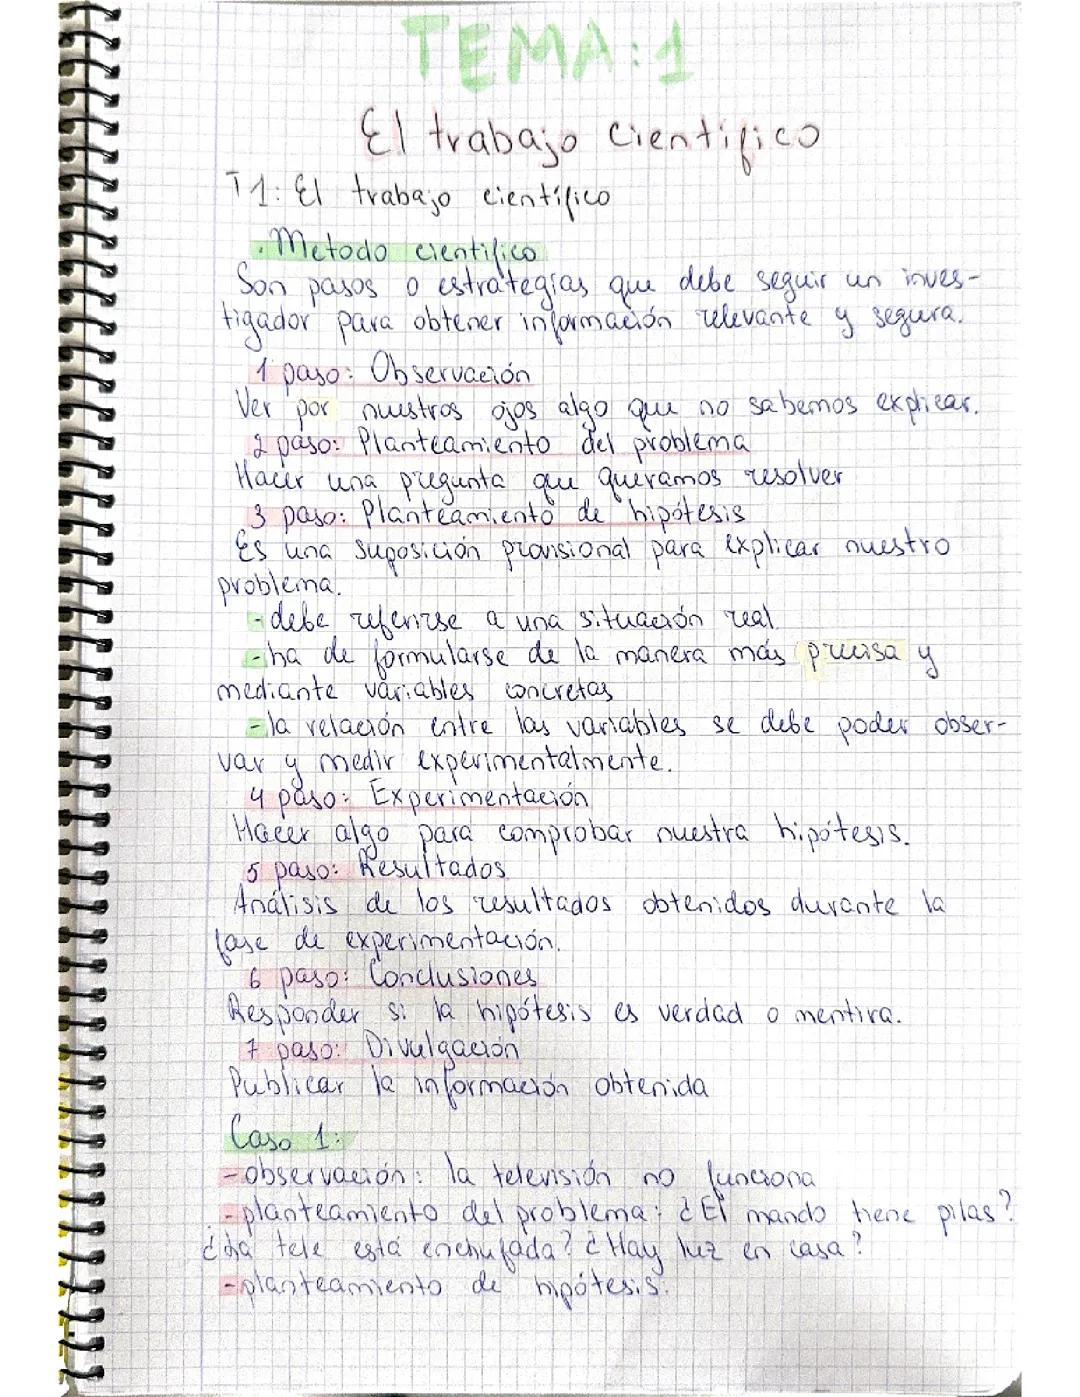 TEMA:1
El trabajo cientifico
T1: El trabajo científico
.Metodo cientifico
Son pasos o estrategias que debe seguir un inves-
tigador para obtener información relevante y segura.
1 paso: Observación
Ver por nuestros ojos algo que no sabemos explicar.
2 paso: Planteamiento del problema
Hacer una pregunta que queramos resolver
3 paso: Planteamiento de hipótesis
Es una suposición provisional para explicar nuestro
problema.
-debe referirse a una situación real
-ha de formularse de la manera más precisa y
mediante variables concretas
-la relación entre las variables se debe poder obser-
var y medir experimentalmente.
4 paso: Experimentación
Hacer algo para comprobar nuestra hipótesis.
5 paso: Resultados
Análisis de los resultados obtenidos durante la
fase de experimentación.
6 paso: Conclusiones
Responder si la hipótesis es verdad o mentira.
7 paso: Divulgación
Publicar la información obtenida
Caso 1:
-observación: la televisión no funciona
-planteamiento del problema: ¿El mando tiene pilas?
¿La tele está enchufada? ¿Hay luz en casa?
-planteamiento de hipótesis: